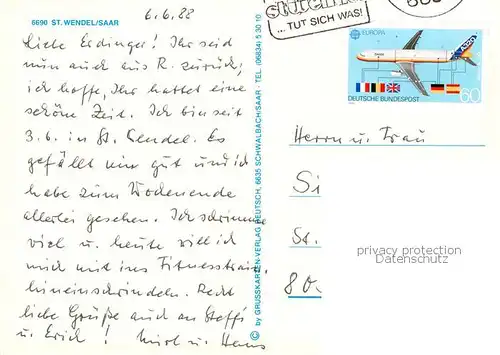 6690 ST. WENDEL/SAAR
6.6.88
Liebe Erdinger! Ihr seid
nun auch aus R. zurück;
ich hoffe, Ihr hattet eine
schöne Zeit. Ich bin seit
3.6. in St. Wendel. Es
gefällt mir gut und ich
habe zum Wochenende
allerlei gesehen. Ich schwimme
viel u. heute will ich
mich mit ins Fitnesstrain.
hineinschwindeln. Recht
liebe Grüße auch an Steffi
u. Erich! u. Hans
© by GRUSSKARTEN-VERLAG DEUTSCH, 6635 SCHWALBACH/SAAR - TEL. (06834) 5 30 10
... TUT SICH WAS!
EUROPA
DEUTSCHE BUNDESPOST
60
Herrn u. Frau
Si
St.
80.
privacy protection
Datenschutz